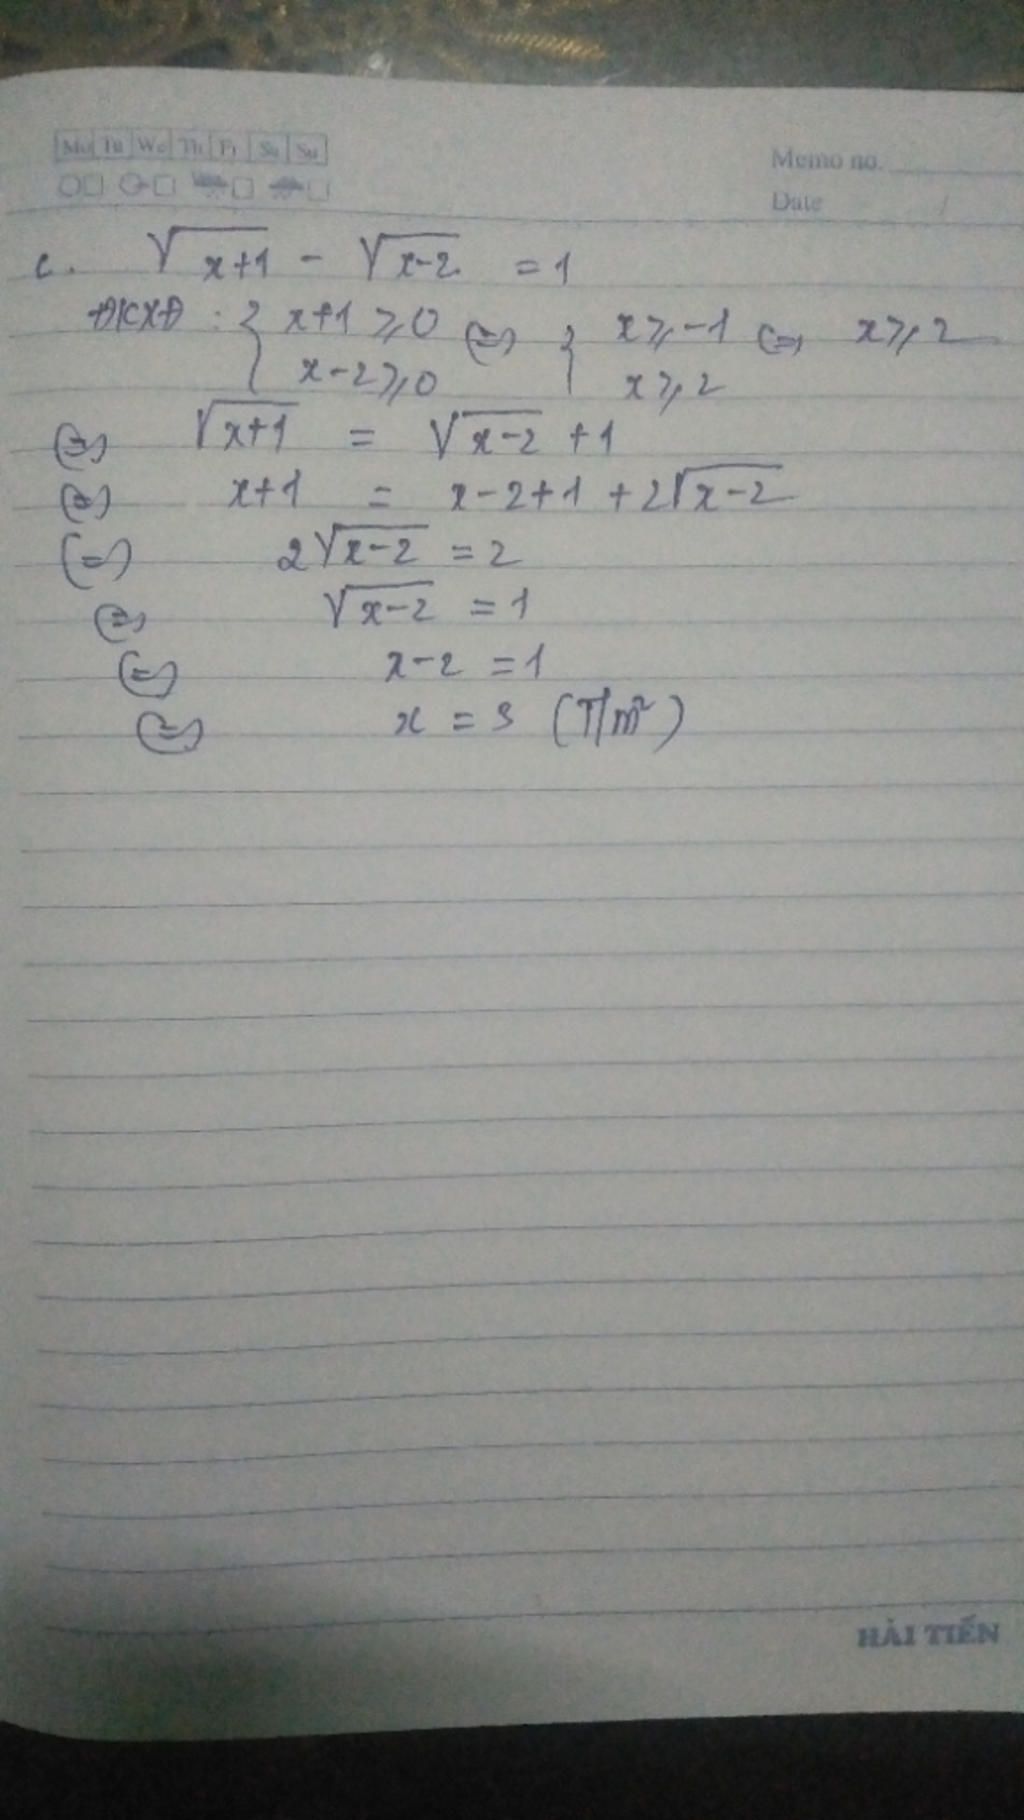 Mo Tu We Th Fr Sa Su
Memo no.
Date /
c. √x+1 - √x-2 = 1
ĐKXĐ : { x+1 ⩾ 0 (=) { x ⩾ -1 (=) x ⩾ 2
x-2 ⩾ 0 x ⩾ 2
(=) √x+1 = √x-2 + 1
(=) x+1 = x-2+1 +2√x-2
(=) 2√x-2 = 2
(=) √x-2 = 1
(=) x-2 = 1
(=) x = 3 (T/m²)
HẢI TIẾN